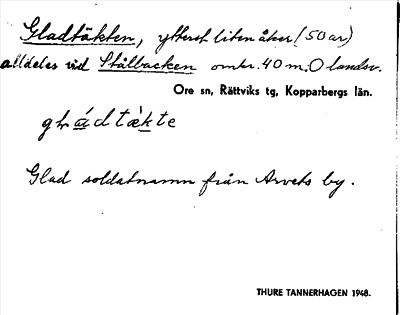 Gladtäkten, ytterst liten åker (50 ar)
alldeles vid Stålbacken omkr. 40 m. O landsv.
Ore sn, Rättviks tg, Kopparbergs län.
Glad soldatnamn från Arvets by.
THURE TANNERHAGEN 1948.